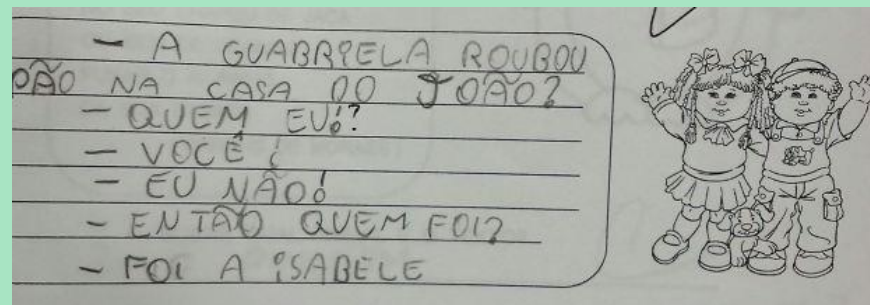 - A GUABRIELA ROUBOU
PÃO NA CASA DO JOÃO?
- QUEM EU!?
- VOCÊ!
- EU NÃO!
- ENTÃO QUEM FOI?
- FOI A ISABELE